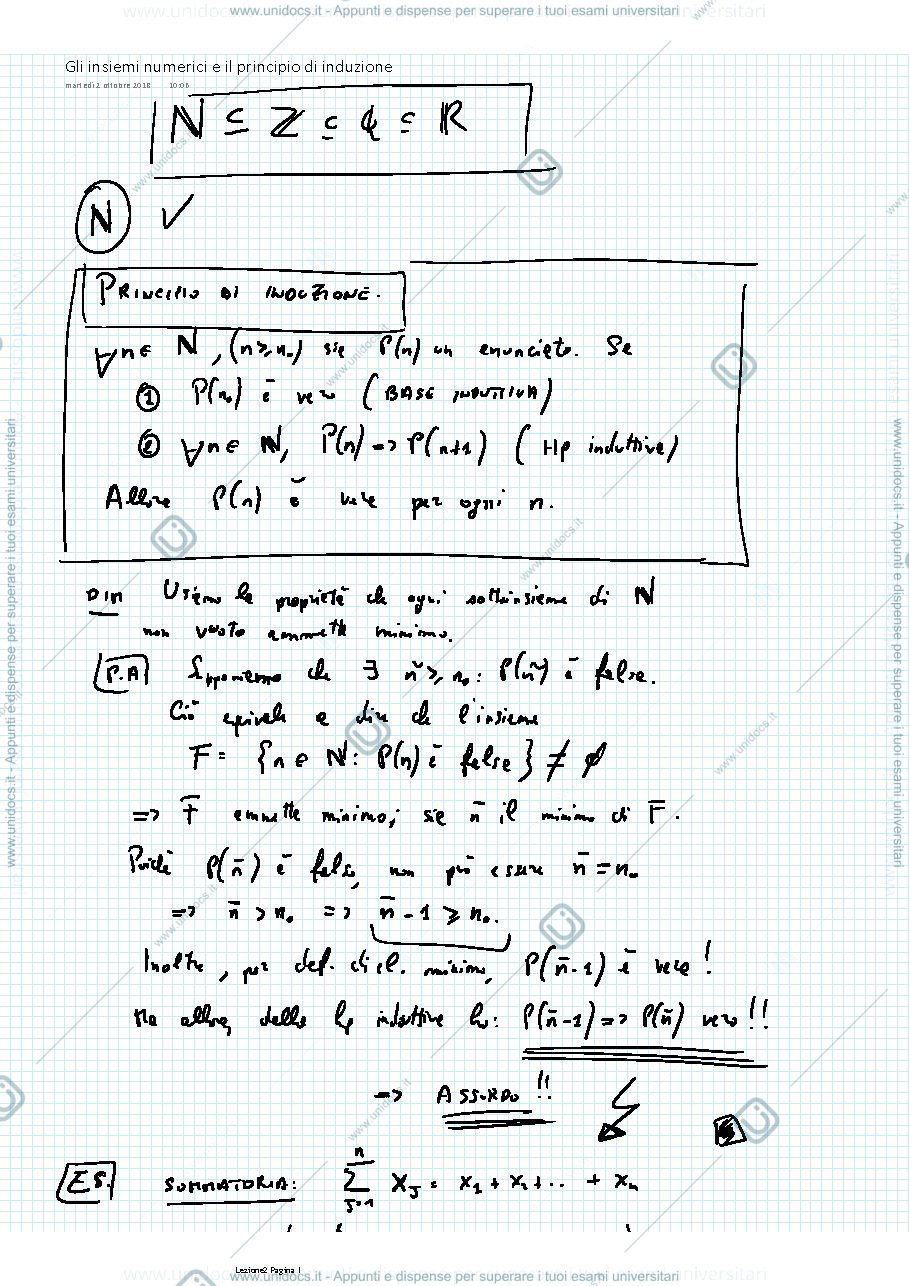 www.unidocs.it - Appunti e dispense per superare i tuoi esami universitari
Gli insiemi numerici e il principio di induzione
martedì 2 ottobre 2018 10:06
ℕ ⊆ ℤ ⊆ ℚ ⊆ ℝ
ℕ ✓
PRINCIPIO DI INDUZIONE.
∀n∈ ℕ, (n≥n₀) sia P(n) un enunciato. Se
① P(n₀) è vera (BASE INDUTTIVA)
② ∀n∈ ℕ, P(n) => P(n+1) (Hp induttiva)
Allora P(n) è vera per ogni n.
DIM Usiamo la proprietà che ogni sottoinsieme di ℕ
non vuoto ammette minimo.
P.A Supponiamo che ∃ ñ ≥ n₀: P(ñ) è falsa.
Ciò equivale a dire che l'insieme
F = {n ∈ ℕ: P(n) è falsa} ≠ ∅
=> F ammette minimo; sia n̄ il minimo di F.
Poiché P(n̄) è falsa, non può essere n̄ = n₀
=> n̄ > n₀ => n̄ - 1 ≥ n₀.
Inoltre, per def. di minimo, P(n̄-1) è vera!
Ma allora, dalla hp induttiva ho: P(n̄-1) => P(n̄) vera!!
=> ASSURDO!!
ES. SOMMATORIA: ∑ⁿⱼ₌₁ xⱼ = x₁ + x₂ + .. + xₙ
Lezione2 Pagina 1
www.unidocs.it - Appunti e dispense per superare i tuoi esami universitari
www.unidocs.it - Appunti e dispense per superare i tuoi esami universitari
www.unidocs.it - Appunti e dispense per superare i tuoi esami universitari